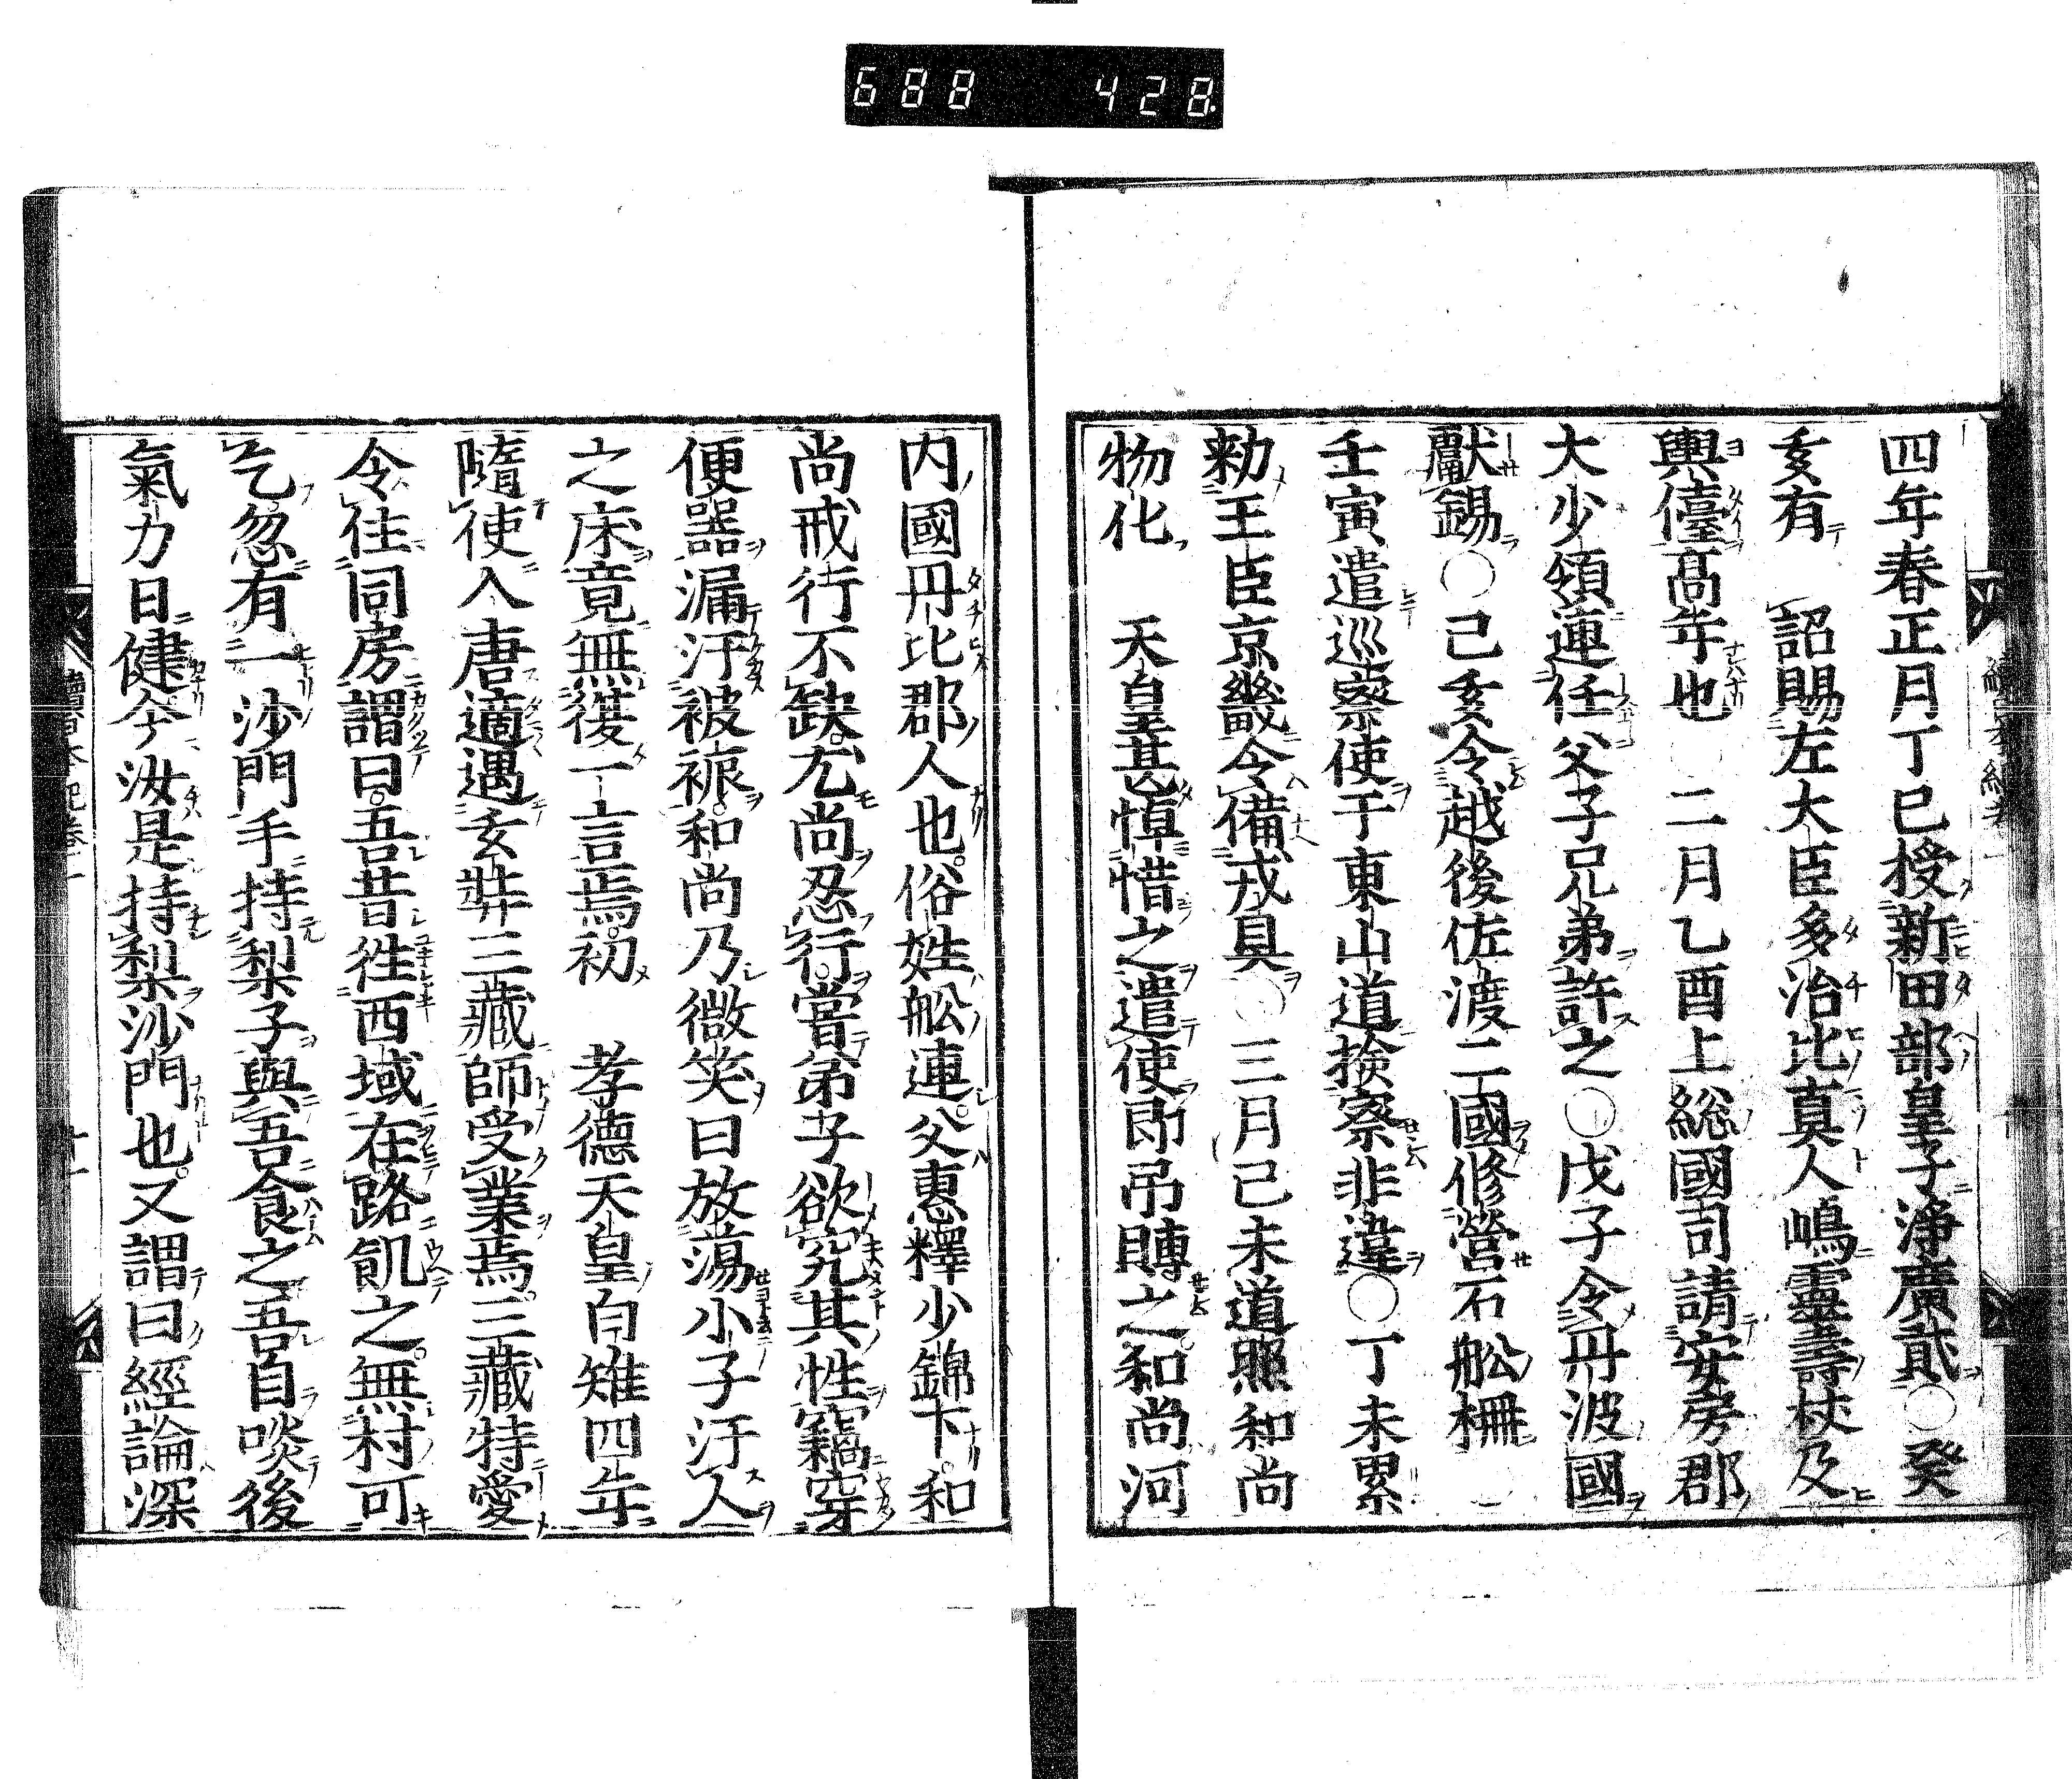 688 428
四年春正月丁巳授新田部皇子淨廣貳○癸
亥有 詔賜左大臣多治比真人嶋靈壽杖及
輿儓高年也○二月乙酉上総國司請安房郡
大少領連任父子兄弟許之○戊子令丹波國
獻錫○己亥令越後佐渡二國修營石舩柵○
壬寅遣巡察使于東山道撿察非違○丁未累
勅王臣京畿令備戎具○三月己未道照和尚
物化 天皇甚悼惜之遣使即吊賻之和尚河
内國丹比郡人也俗姓舩連父惠釋少錦下和
尚戒行不缺尤尚忍行嘗弟子欲究其性竊穿
便器漏汙被褥和尚乃微笑曰放蕩小子汙人
之床竟無復一言焉初 孝德天皇白雉四年
隨使入唐適遇玄弉三藏師受業焉三藏特愛
令住同房謂曰吾昔徃西域在路飢之無村可
乞忽有一沙門手持梨子與吾食之吾自啖後
氣力日健今汝是持梨沙門也又謂曰經論深